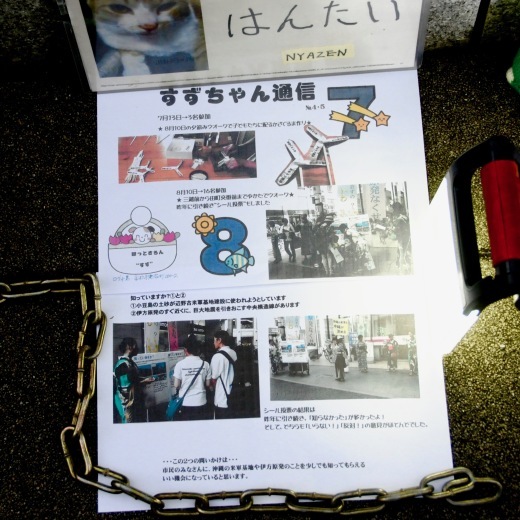 はんたい
NYAZEN
すずちゃん通信
№4・5
7月13日→5名参加
★8月10日の夕暮みウオークで子どもたちに配るかざぐるま作り★
7
8月10日→16名参加
★三越前から旧町交番前までゆかたでウオーク★
昨年に引き続き"シール投票"もしました
ほっときらん
"すず"
8
知っていますか?①と②
①小豆島の土砂が辺野古米軍基地建設に使われようとしています
②伊方原発のすぐ近くに、巨大地震を引きおこす中央構造線があります
シール投票の結果は
昨年に引き続き、「知らなかった」が多かったよ!
そして、どちらも「いらない!」「反対!」の意見がほとんどでした。
・・・この2つの問いかけは・・・
市民のみなさんに、沖縄の米軍基地や伊方原発のことを少しでも知ってもらえる
いい機会になっていると思います。